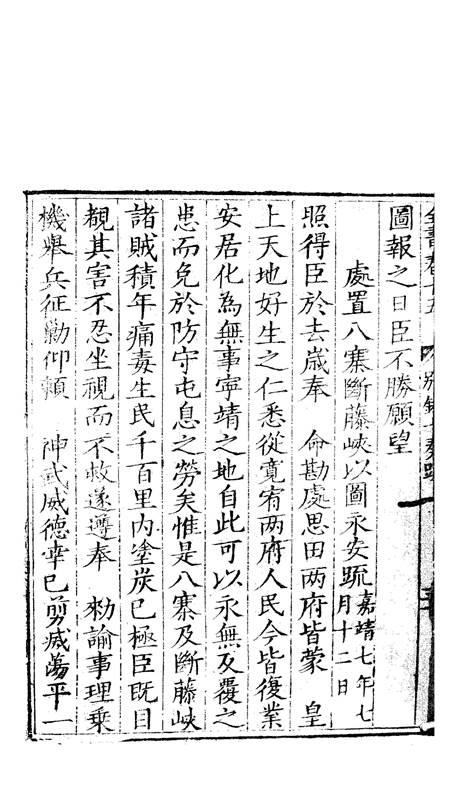 圖報之日臣不勝願望
處置八寨斷藤峽以圖永安䟽嘉靖七年七月十二日
照得臣於去歲奉 命勘處思田兩府皆蒙 皇
上天地好生之仁悉從寬宥兩府人民今皆復業
安居化為無事寧靖之地自此可以永無反覆之
患而免於防守屯息之勞矣惟是八寨及斷藤峽
諸賊積年痛毒生民千百里內塗炭已極臣既目
覩其害不忍坐視而不救遂遵奉 勑諭事理乗
機舉兵征勦仰賴 神武威德幸已剪滅蕩平一